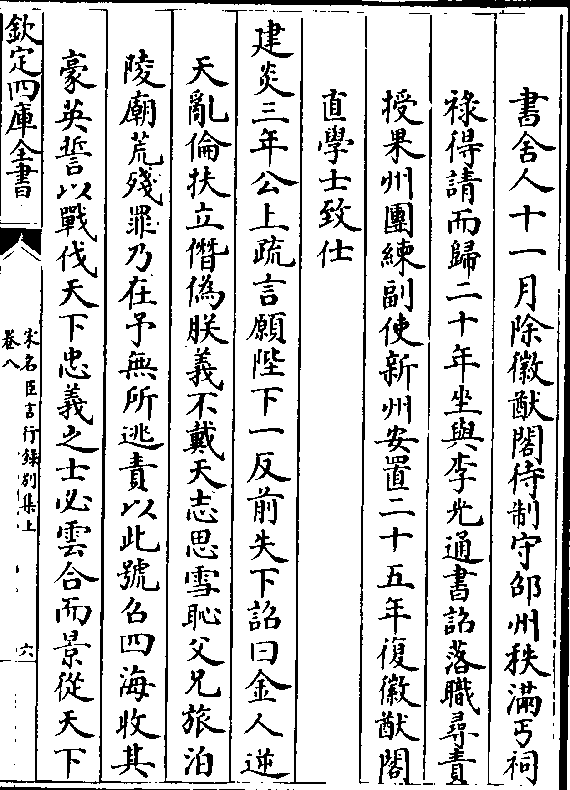 書舍人十一月除徽猷閣待制守邵州秩滿丐祠
祿得請而歸二十年坐與李光通書詔落職尋責
授果州團練副使新州安置二十五年復徽猷閣
直學士致仕
建炎三年公上疏言願陛下一反前失下詔曰金人逆
天亂倫扶立僭偽朕義不戴天志思雪恥父兄旅泊
陵廟荒殘罪乃在予無所逃責以此號召四海收其
豪英誓以戰伐天下忠義之士必雲合而景從天下
欽定四庫全書
宋名臣言行錄別集上
卷八
六